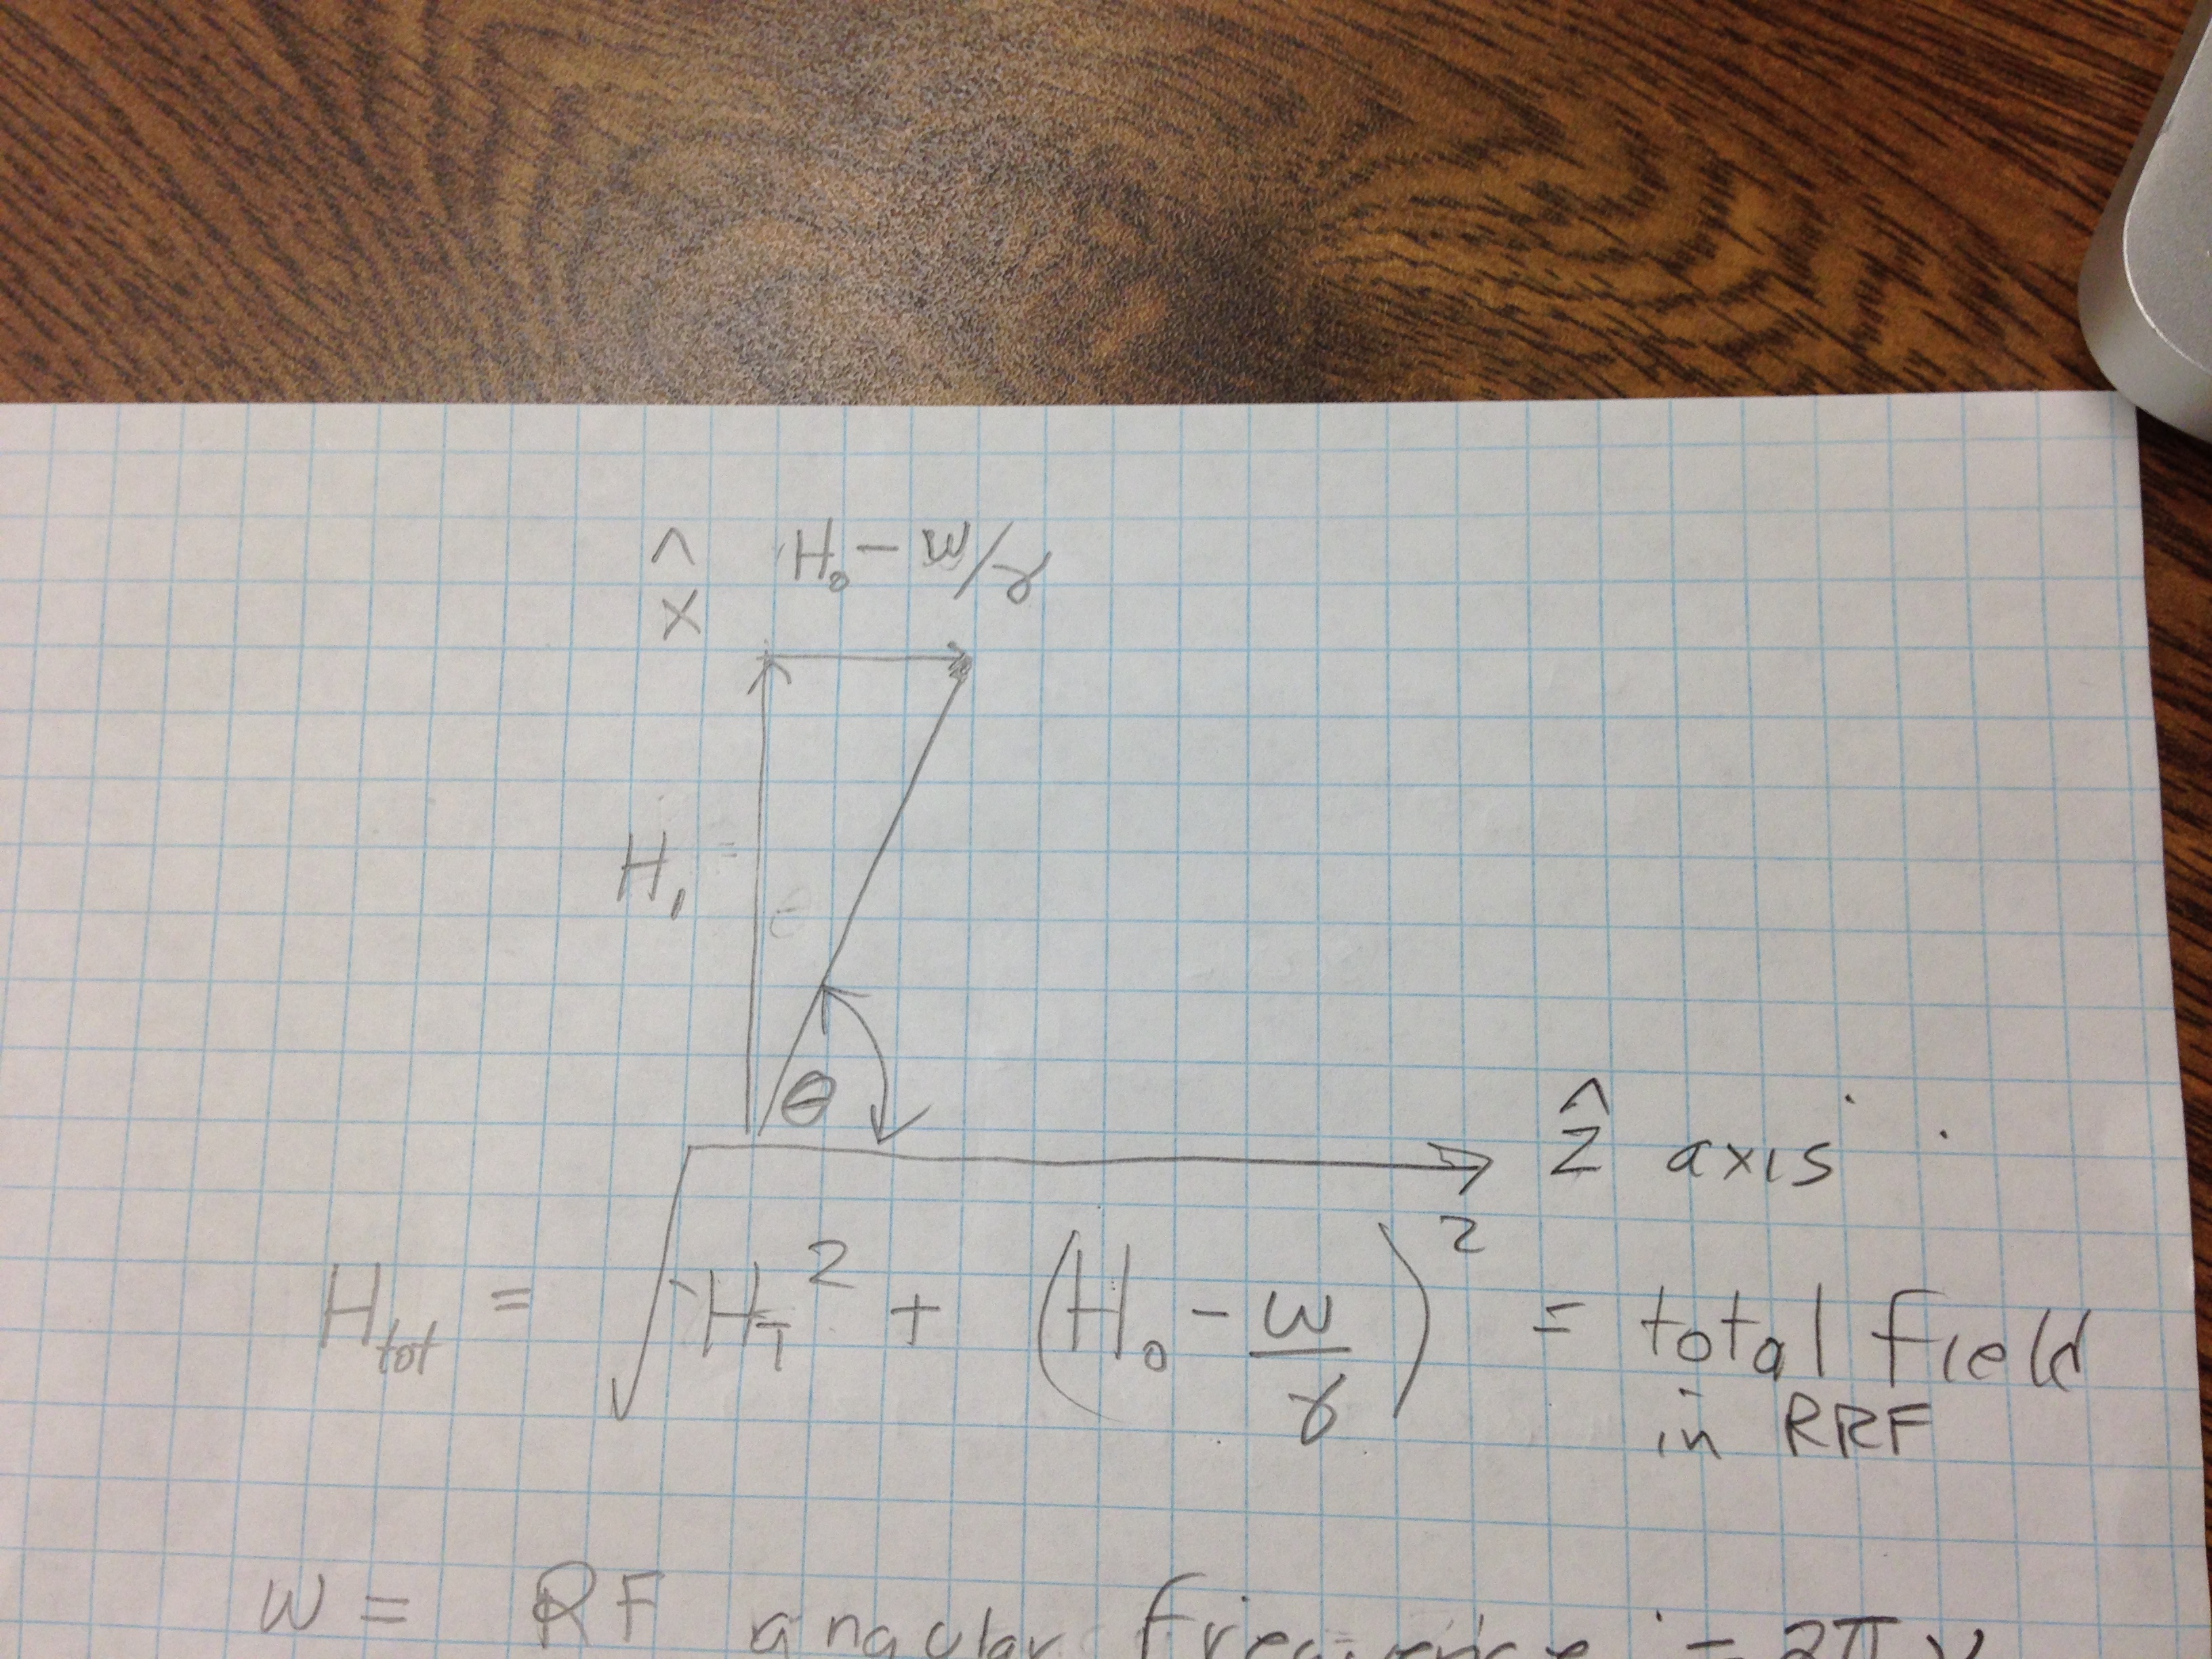 x̂ H₀ - ω/γ
H₁
θ
ẑ axis
H_tot = √(H₁² + (H₀ - ω/γ)²) = total field
in RRF
ω = RF angular frequency = 2πν